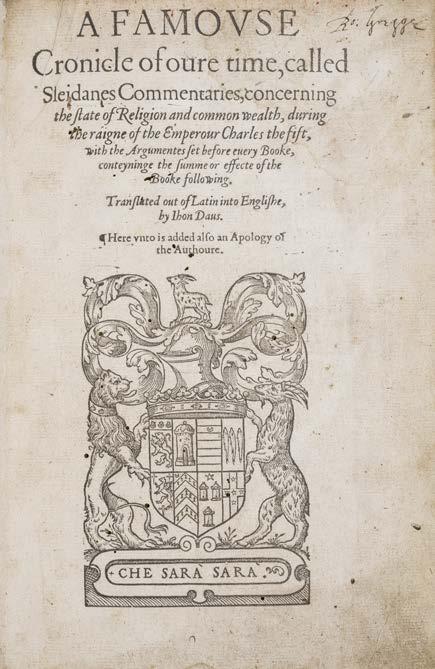 A FAMOVSE
Cronicle of oure time, called
Sleidanes Commentaries, concerning
the state of Religion and common wealth, during
the raigne of the Emperour Charles the fift,
with the Argumentes set before euery Booke,
conteyninge the summe or effecte of the
Booke following.
Translated out of Latin into Englishe,
by Ihon Daus.
¶Here vnto is added also an Apology of
the Authoure.
CHE SARÀ SARÀ.